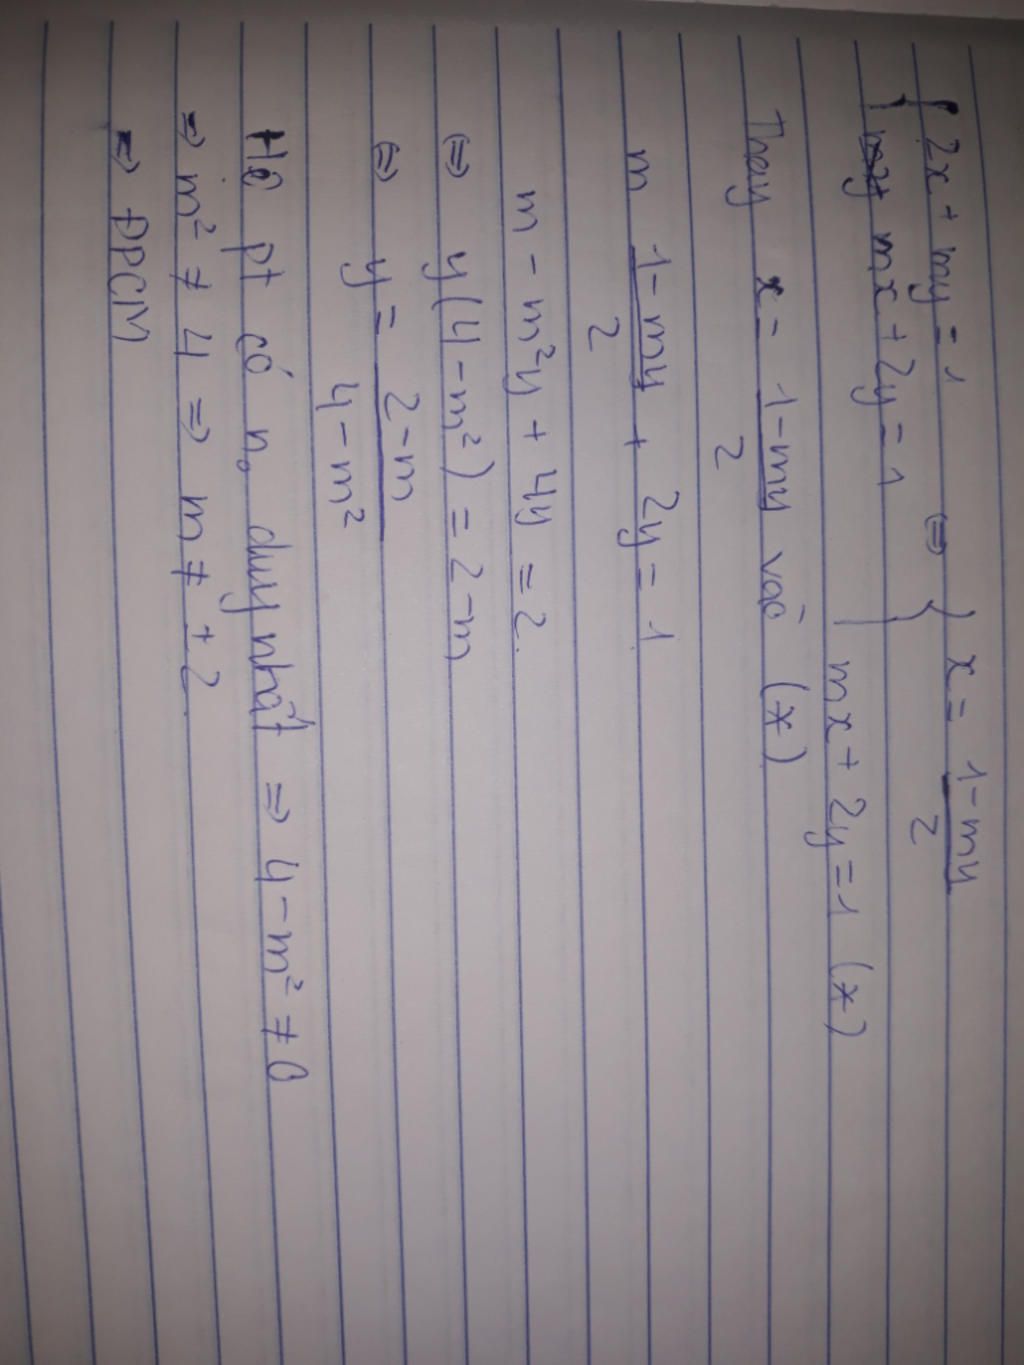 { 2x + my = 1 ⇔ { x = (1 - my)/2
mx + 2y = 1 mx + 2y = 1 (*)
Thay x = (1 - my)/2 vào (*)
m (1 - my)/2 + 2y = 1
m - m²y + 4y = 2
⇔ y(4 - m²) = 2 - m
⇔ y = (2 - m)/(4 - m²)
Hệ pt có n₀ duy nhất ⇒ 4 - m² ≠ 0
⇒ m² ≠ 4 ⇒ m ≠ ± 2
⇒ ĐPCM